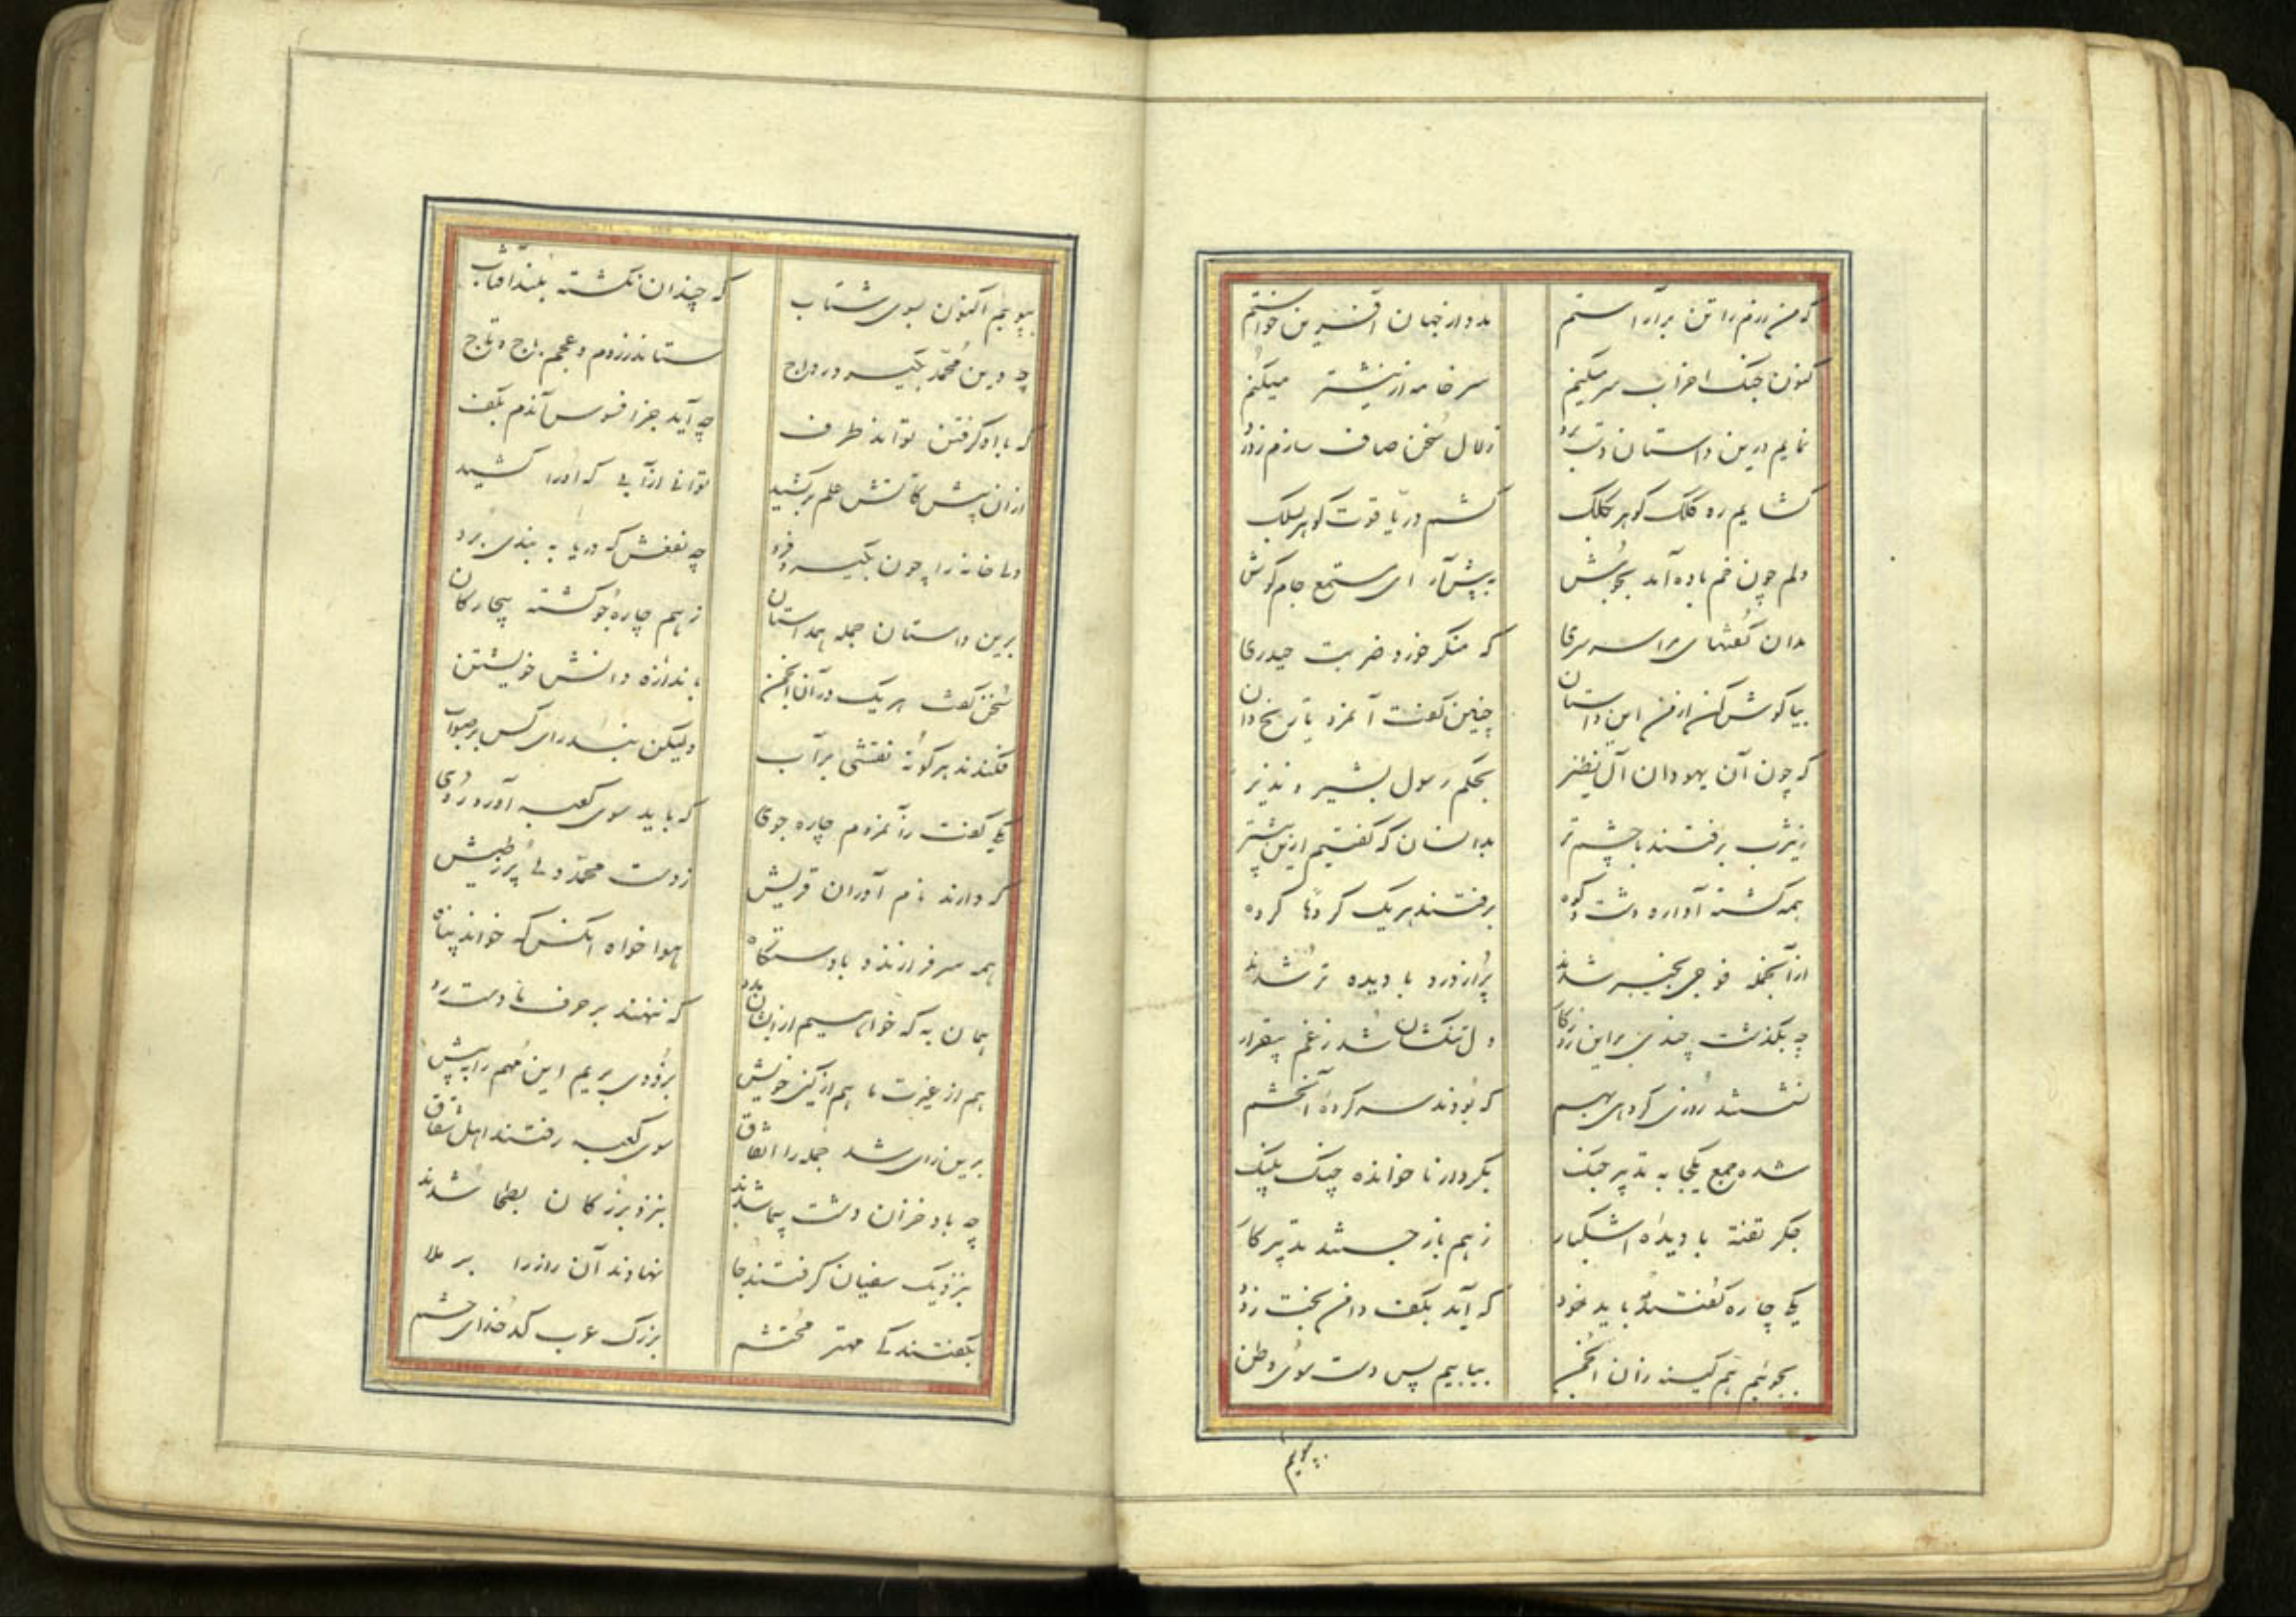 که من رزم را تن برآراستم مدد از جهان آفرین خواستم
کنون جنک احزاب سر میکنم سر خامه از نیشتر میکنم
نمایم درین داستان دست برد زلال سخن صاف سازم ز درد
کشایم ره کلک کوهر بکلک کشم در یاقوت کوهر بسلک
دلم چون خم باده آمد بجوش به پیش آر ای مستمع جام کوش
بدان که منکر خورد ضربت حیدری
بیا کوش کن از من این داستان چنین کفت آنمرد تاریخ دان
که چون آن یهودان آل نضیر بحکم رسول بشیر و نذیر
زیثرب برفتند با چشم تر بدانسان که کفتیم ازین پیشتر
همه کشته آواره دشت و کوه برفتند هر یک کروها کروه
از آنجمله فوجی بخیبر شدند پر از درد با دیده تر شدند
چه بکذشت چندی براین روزکار دل تنکشان شد ز غم بیقرار
نشستند روزی کروهی بهم که بودند سرکرده آنحشم
شده جمع یکجا به تدبیر جنک بکردار ناخوانده چنک پلنک
جکر تفته با دیده اشکبار ز هم باز جستند تدبیر کار
یکی چاره کفتند باید نمود که آید بکف دامن بخت زود
بجوئیم هم کینه زان انجمن بیابیم پس دست سوی وطن
بپوئیم
بپوییم اکنون بسوی شتاب که چندان نکشته بلند آفتاب
چه دین محمد بکیرد رواج ستاند ز روم و عجم باج و تاج
که با او کرفتن تواند طرف چه آید جز افسوس آندم بکف
از آن پیش کاتش علم برکشید توانی ز آبی که او را کشید
ولی خانه را چون بکیرد فرو چه نفعش که دریا به بندی برو
برین داستان جمله همداستان ز هم چاره جو کشته بیچارکان
سخن کفت هر یک در آن انجمن باندازه دانش خویشتن
فکندند هر کونه نقشی بر آب ولیکن نبد رای کس بر صواب
یکی کفت زآنمردم چاره جوی که باید سوی کعبه آورد روی
که دارند نام آوران قریش ز دست محمد دلی پر ز طیش
همه سرفرازند و با دستکاه هوا خواه آنکس که خواند پناه
همان به که خواهیم از ایشان مدد که ننهند بر حرف ما دست رد
هم از غیرت ما هم از کین خویش بزودی بریم این مهم را به پیش
برین رای شد جمله را اتفاق سوی کعبه رفتند اهل شقاق
چه باد خزان دشت پیما شدند بنزد بزرکان بطحا شدند
بنزدیک سفیان کرفتند جا نهادند آن راز را بر ملا
بکفتند کی مهتر محتشم بزرک عرب کدخدای حشم